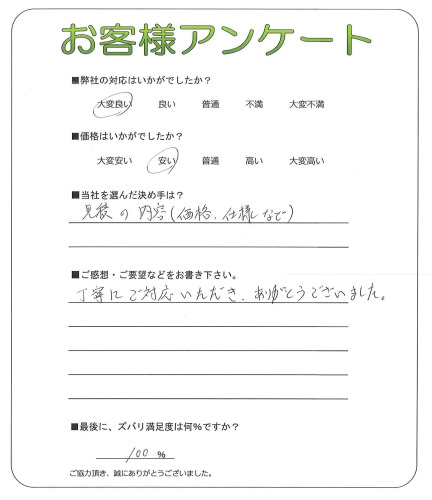 お客様アンケート
■弊社の対応はいかがでしたか？
大変良い 良い 普通 不満 大変不満
■価格はいかがでしたか？
大変安い 安い 普通 高い 大変高い
■当社を選んだ決め手は？
見積の内容(価格、仕様など)
■ご感想・ご要望などをお書き下さい。
丁寧にご対応いただき、ありがとうございました。
■最後に、ズバリ満足度は何％ですか？
100 %
ご協力頂き、誠にありがとうございました。